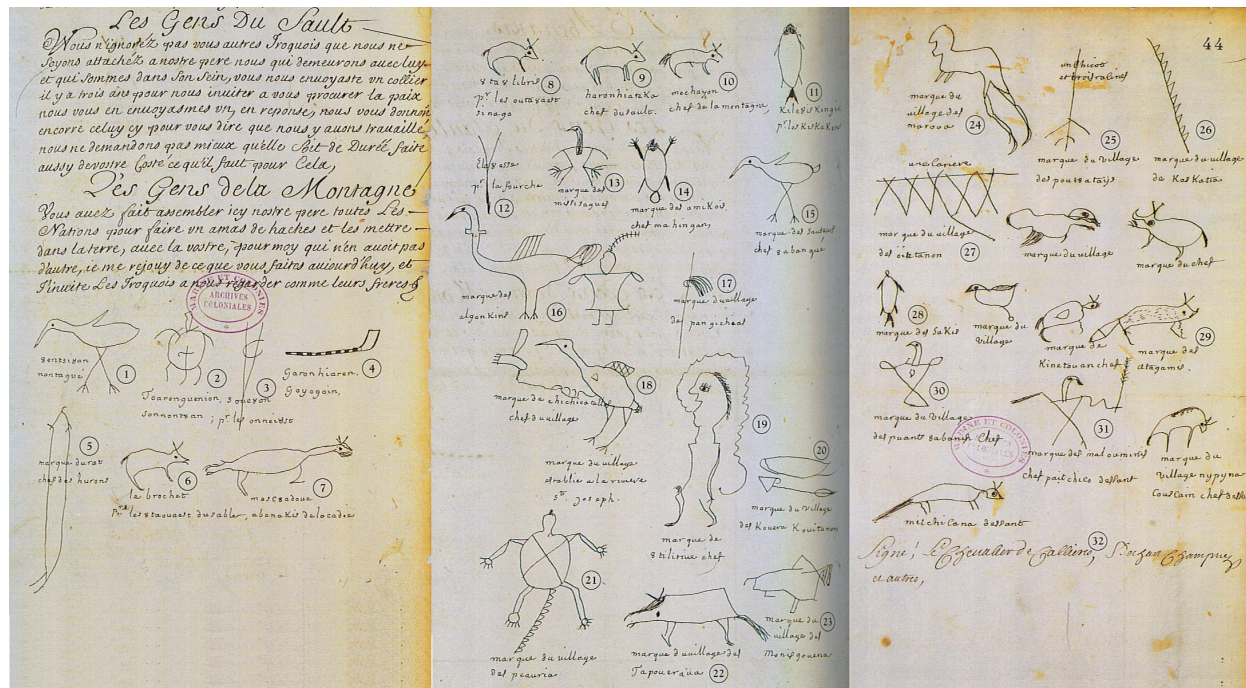 Les Gens Du Sault
Vous n'ignorez pas vous autres Iroquois que nous ne
soyons attachez a nostre pere nous qui demeurons avec luy
et qui sommes dans son sein, vous nous envoyaste un collier
il y a trois ans pour nous inviter a vous procurer la paix
nous vous en envoyasmes un, en reponse, nous vous donnons
encorre celuy cy pour vous dire que nous y avons travaillé,
nous ne demandons pas mieux qu'elle soit de Durée faite
aussy de vostre Costé ce qu'il fault pour Cela,
Les Gens de la Montagne
Vous avez fait assembler icy nostre pere toutes Les
Nations pour faire un amas de haches et les mettre
dans la terre, avec la vostre, pour moy qui n'en avoit pas
d'autre, je me rejouy de ce que vous faites aujourd'huy, et
J'invite Les Iroquois a nous regarder comme leurs freres
MARINE ET COLONIES
ARCHIVES
COLONIALES
1
2
3
4
montagué
Garonhiaren,
Goyogoin,
Toarenguenion,
sonnontuan; pr. les onneiust
5
marque du rat
chef des hurons
6
7
le brochet
mescadoue
pr. les 8taouacs du sable, abenakis de lacadie
8
9
10
11
pr les outa8ast
sinago
haronhiateka
chef du sault.
mechayon
chef de la montagne,
Kileo8iskingie
pr. les Kiskakons
12
13
14
15
pr. la fourche
marque des
missisagues
marque des amikois
chef mahingan,
marque des Sauteurs
chef 8abangué
16
17
marque des
algonkins
marque du village
de pangicheas
18
19
20
marque de chichicatalle
chef du village
marque du village
establie a la riviere
St. Joseph.
marque de
8tilirine chef
marque du village
des Kouera Kouitanon
21
22
23
marque du village
des peauria
marque du village des
Tapouaroua
marque du
village des
Monisgouena
44
24
25
26
marque du
village des
maroua
un chicot
et trois racines
marque du village
des pouratays
marque du village
de KasKatia
une Cariere
27
marque du village
des oiatanon
marque du village
marque du chef
28
29
marque des Sakis
marque du
village
marque de
Kinetouan chef
marque des
atagamis.
30
31
marque du village
des puant 8abanis
Chef
marque des malouminis
chef paitchico dessant
marque du
village nypyna
MARINE ET COLONIES
milchicana dessant
32
Signé! Le Chevalier de Calliere, Bochart Champigny
et autres,